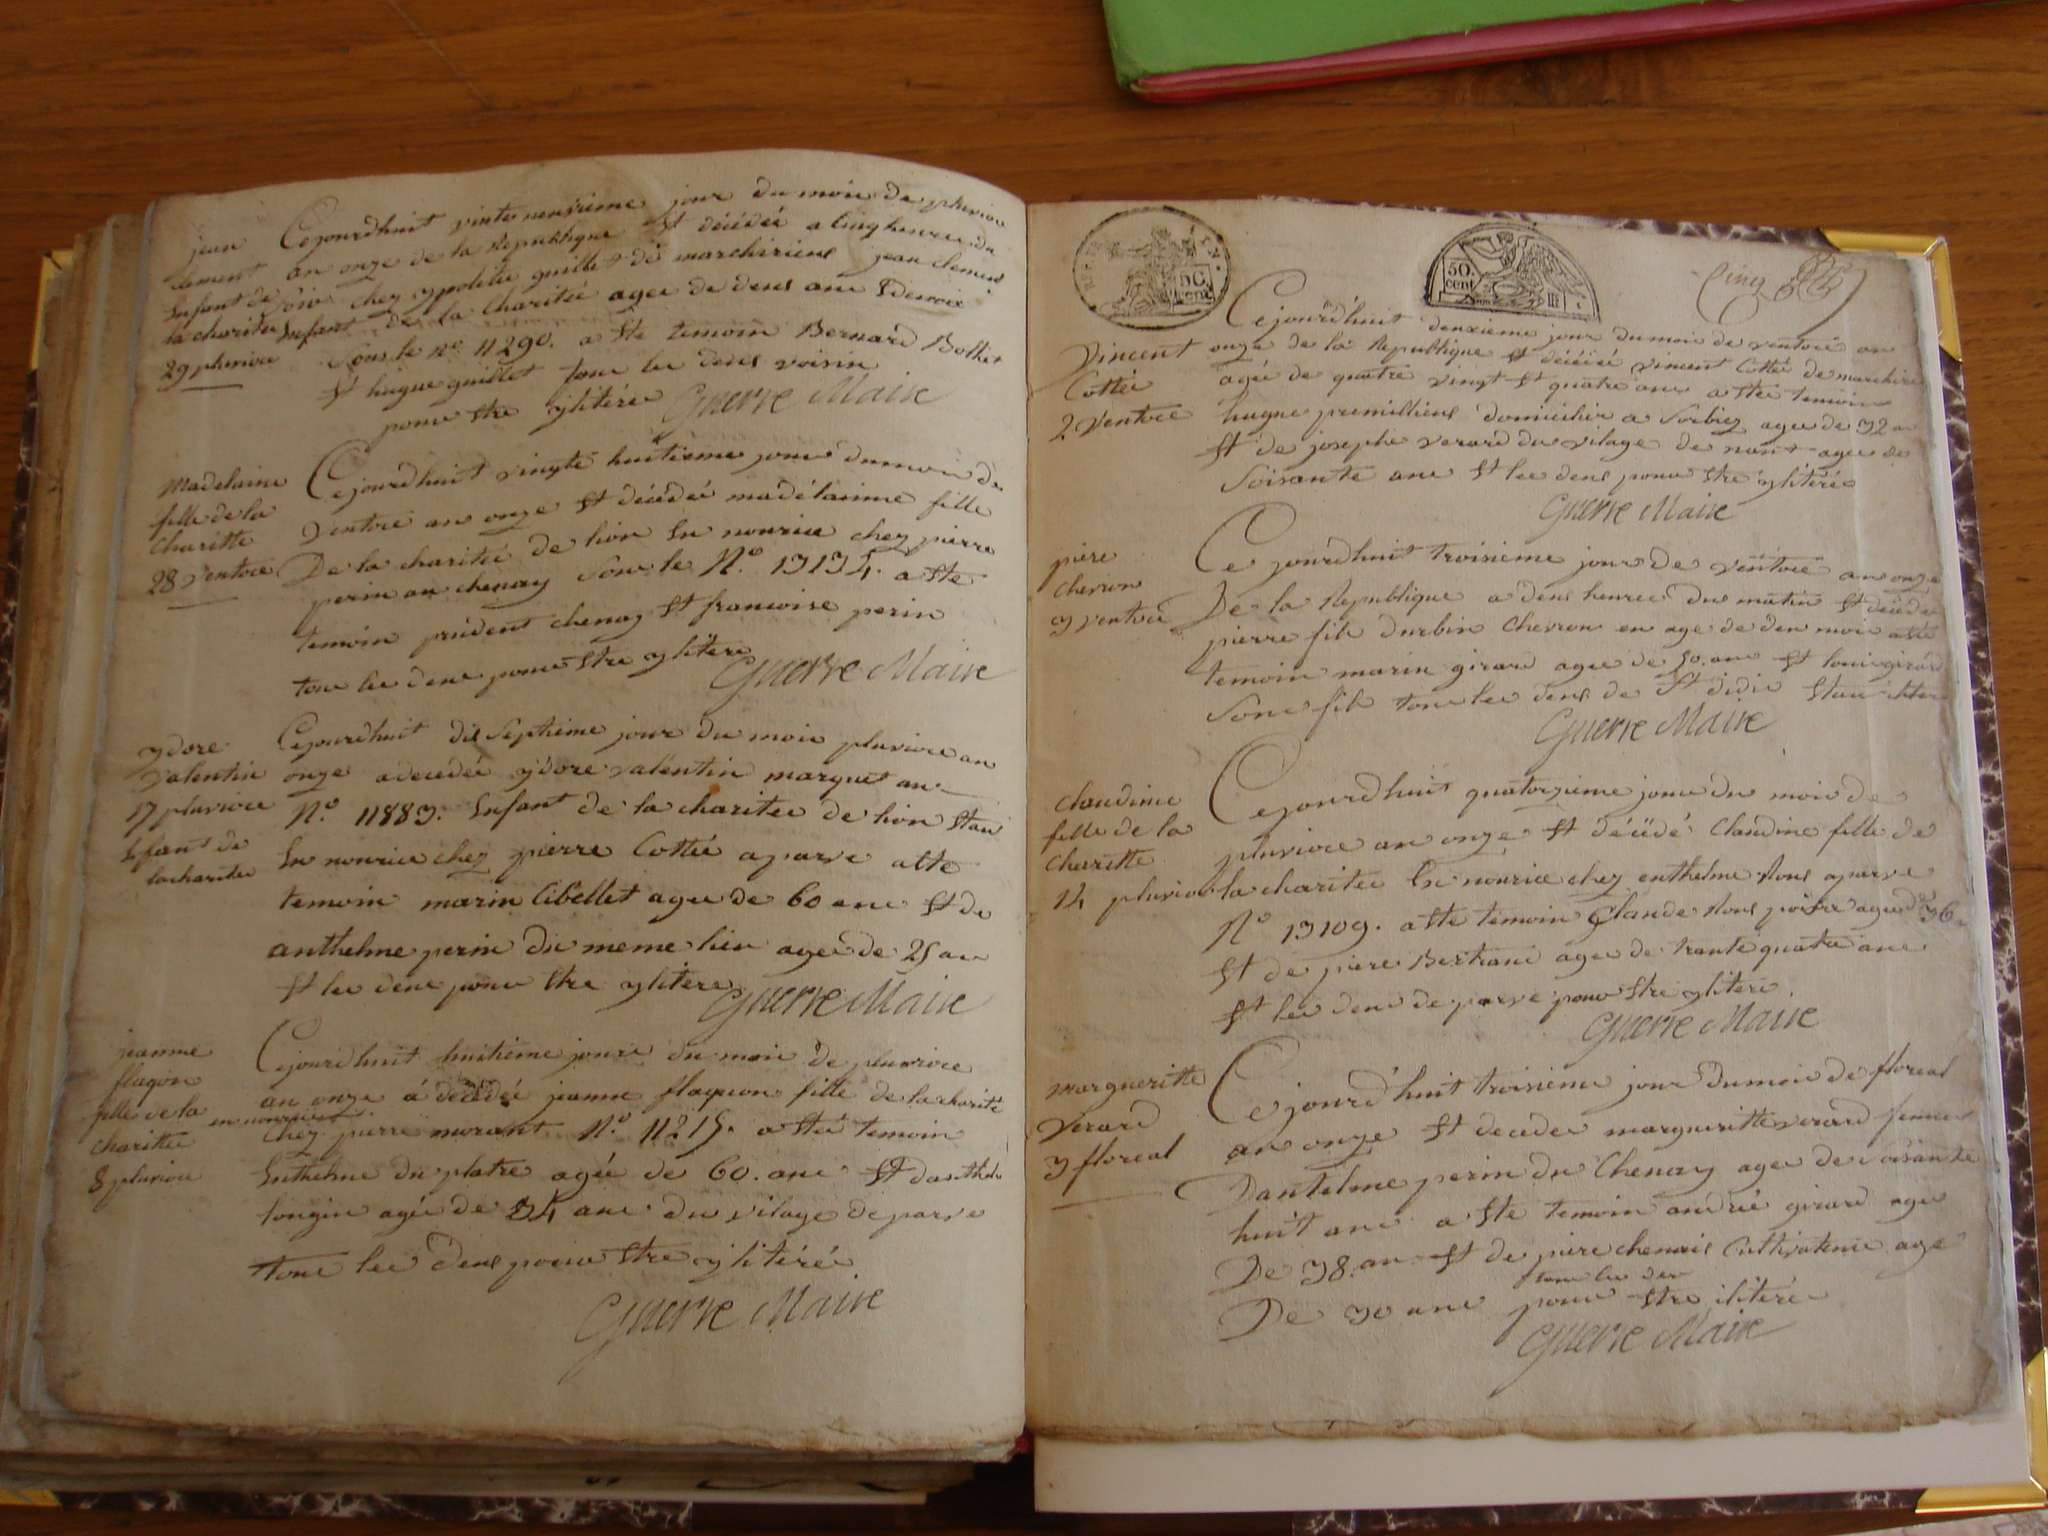 jean
clement
Enfant de
la charitee
29 pluviose
Cejourdhuit vinte neuvieme jour du mois de pluviose
an onze de la Republique Et décédéé a cinq heures du
soir chez ypolitte guillet de marchiriens jean clement
Enfant de la Charitéé agee de deus ans Edemie
sous le no. 11290. a Ete temoin Bernard Bolliet
Et hugue guillet tous les deus voisin
pour etre ylitéré Guerre Maire
Madelaine
fille de la
Charitte
28 Ventose
Cejourdhuit vingte huitieme jour dumois de
Ventose an onze Et décédéé madelainne fille
De la charitéé de lion En nourice chez pierre
perin au chenay sous le No. 13134. a Ete
temoin prudent chenay Et francoise perin
tous les deus pour Etre ylitere
Guerre Maire
ydore
Valentin
17 pluviose
Enfant de
la charitee
Cejourdhuit dis Septieme jour Du mois pluviose an
onze adecédéé ydore valentin marquet au
No. 11883. Enfant de la charitee de lion Etan
En nourice chez pierre Cottée aparve a Ete
temoin marin Cibellet agee de 60 ans Et de
anthelme perin du meme lieu agee de 25 an
Et les deus pour Etre ylitere
Guerre Maire
jeanne
flaqon
fille de la
charittee
8 pluviose
Cejourdhuit huitieme jours du mois de pluviose
an onze á décédéé jeanne flaquon fille de la charité
en nourice
chez pierre morant No. 11215. a Eté temoin
Enthelme du platre agée de 60. ans Et Danthelme
longin agée de 34 ans du vilage de parve
tous les deus pour Etre ylitéré
Guerre Maire
50
cent
50.
cent
Cinq
Vincent
Cottée
2 Ventose
Cejourdhuit deuxieme jour dumois de ventose an
onze de la Republique Et décédéé vincent Cottée de marchirie
agée de quatre vingt Et quatre ans a Ete temoin
hugue premilliens domicilier a Sorbiez agee de 32 an
Et de josephe verard du vilage de nant agee de
Soisante ans Et les deus pour Etre ylitéré
Guerre Maire
piere
Chevron
3 ventose
Ce jourdhuit troisieme jour De Ventose an onze
De la Republique a deus heures du matin Et décédé
pierre fils Durbin Chevron en age de deu mois a Ete
temoin marin girard agee de 50. ans Et louis girard
Sons fils tous les deus de St didie Etan litere
Guerre Maire
Claudine
fille de la
Charitte
14 pluviose
Cejourdhuit quatorzieme jour du mois de
pluviose an onze Et décédé Claudine fille de
la charitée En nourice chez enthelme Rous aparve
No 13109. a Ete temoin Claude Rous poitre agee de 36
Et de piere Bertrand agee de trante quatre ans
Et les deus de parve pour Etre ylitere.
Guerre Maire
Margueritte
Verard
3 floreal
Cejourdhuit troisieme jour Dumois de floreal
an onze Et decedee margueritte verard femme
Dantelme perin du Chenay agee de soisante
huit ans a Ete temoin andrée girard agee
De 38. an Et de piere chenais Cultivateur age
tous les deus
De 30 ans pour Etre ilitere
Guerre Maire